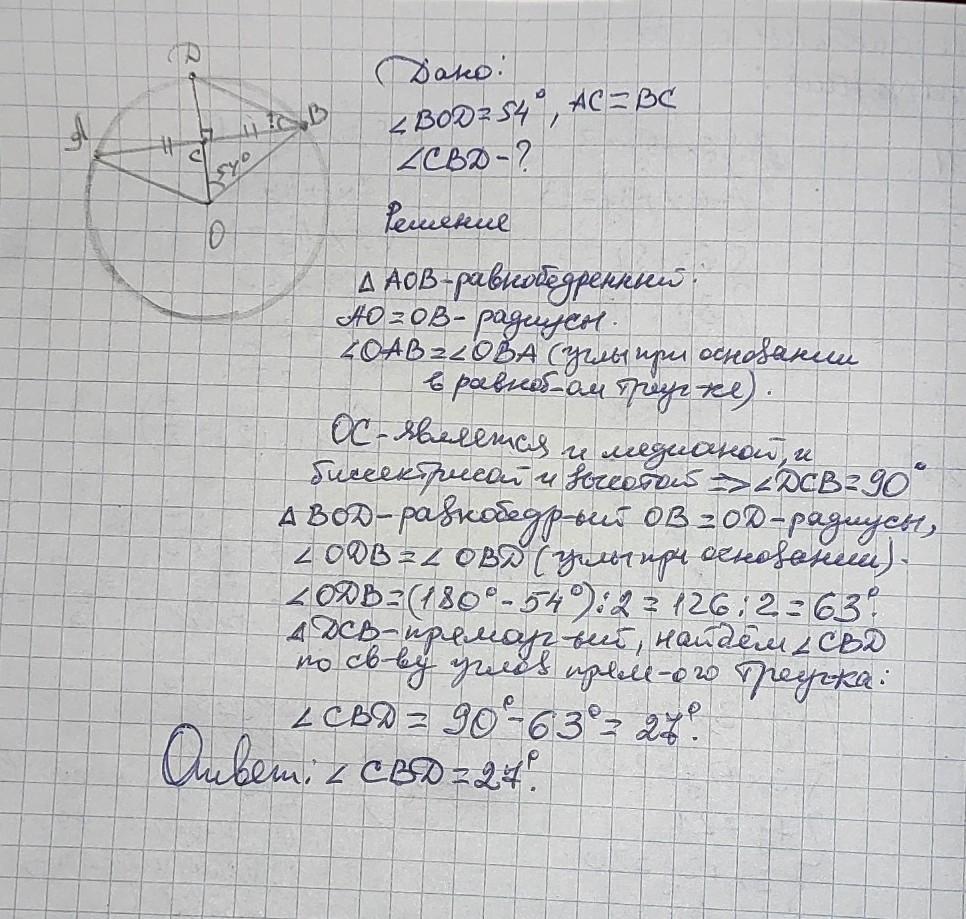 D
A
B
?
C
54°
O
Дано:
∠BOD=54°, AC=BC
∠CBD-?
Решение
△AOB-равнобедренный.
AO=OB-радиусы.
∠OAB=∠OBA (углы при основании
в равноб-ом треуг-ке).
OC-является и медианой, и
биссектрисой и высотой => ∠DCB=90°
△BOD-равнобедр-ый OB=OD-радиусы,
∠ODB=∠OBD (углы при основании).
∠ODB=(180°-54°):2=126:2=63°.
△DCB-прямоуг-ый, найдём ∠CBD
по св-ву углов прям-ого треуг-ка:
∠CBD=90°-63°=27°.
Ответ: ∠CBD=27°.